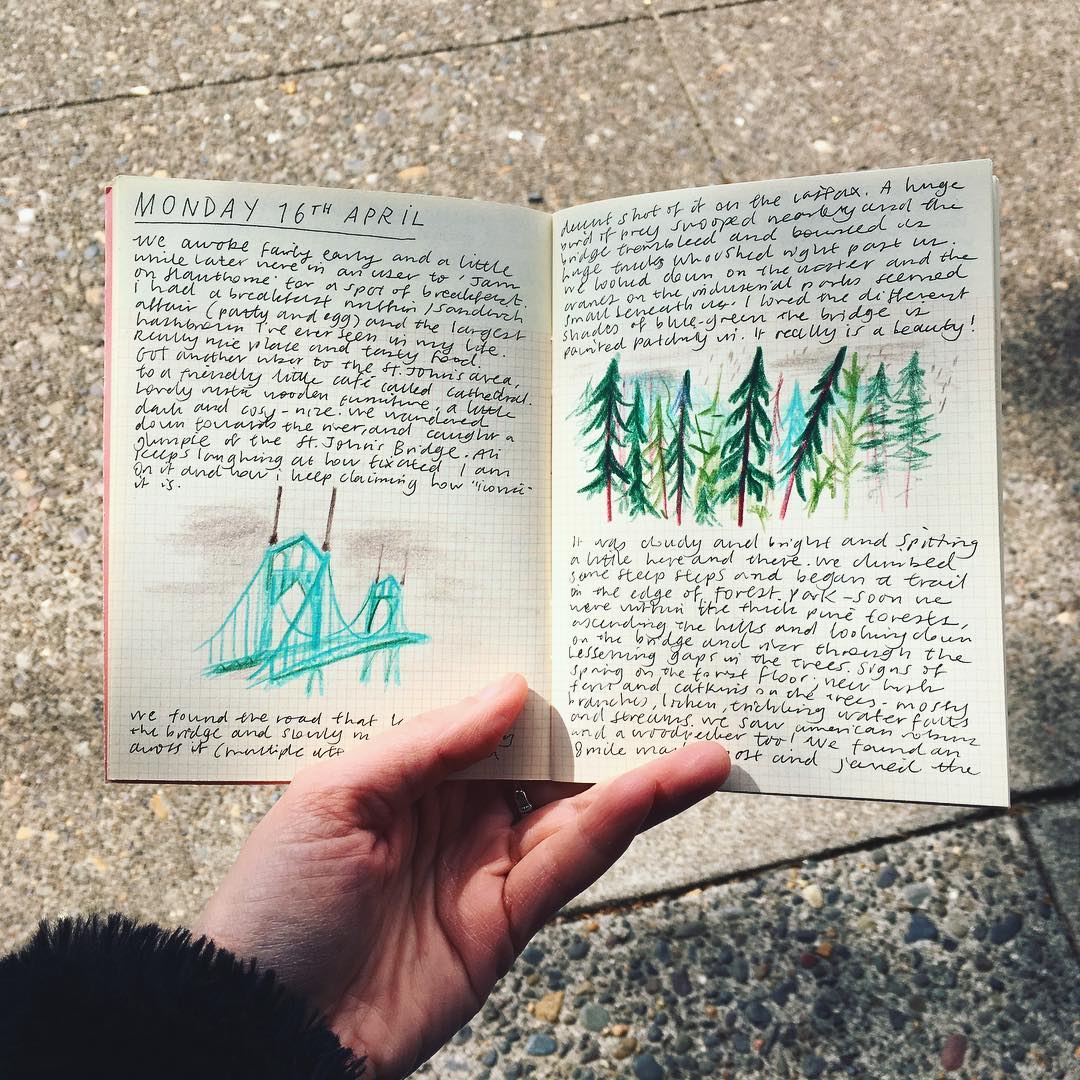 MONDAY 16TH APRIL
We awoke fairly early and a little
while later were in an uber to 'Jam
on Hawthorne' for a spot of breakfast.
i had a breakfast muffin/sandwich
affair (patty and egg) and the largest
hashbrown I've ever seen in my life.
Really nice place and tasty food.
Got another uber to the St. Johns area,
to a friendly little café called cathedral.
Lovely rustic wooden furniture, a little
dark and cosy-nice. We wandered
down towards the river, and caught a
glimpse of the St. Johns Bridge. Ali
keeps laughing at how fixated I am
on it and how i keep claiming how "iconic"
it is.
We found the road that
the bridge and slowly
across it (multiple
decent shot of it on the. A huge
bird of prey swooped nearby and the
bridge trembled and bounced as
huge trucks whooshed right past us.
We looked down on the water and the
cranes on the industrial parks seemed
small beneath us. I loved the different
shades of blue-green the bridge is
painted patchily in. It really is a beauty!
It was cloudy and bright and spitting
a little here and there. We climbed
some steep steps and began a trail
on the edge of Forest Park - soon we
were within the thick pine forests,
ascending the hills and looking down
on the bridge and river through the
lessening gaps in the trees. Signs of
spring on the forest floor, new lush
ferns and catkins on the trees - mossy
branches, lichen, trickling waterfalls
and streams. We saw American robins
and a woodpecker too! We found an
8 mile post and joined the